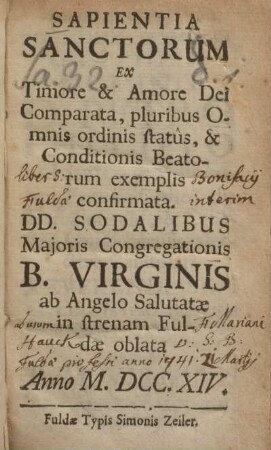 SAPIENTIA
SANCTORUM
EX
Timore & Amore Dei
Comparata, pluribus O-
mnis ordinis statûs, &
Conditionis Beato-
liber S: rum exemplis Bonifacij
Fuldæ confirmata. interim
DD. SODALIBUS
Majoris Congregationis
B. VIRGINIS
ab Angelo Salutatæ
in strenam Ful- F: Mariani
Hauck dæ oblata O: S: B:
Fuldæ professi anno 1741. Martij
Anno M. DCC. XIV.
Fuldæ Typis Simonis Zeiler.